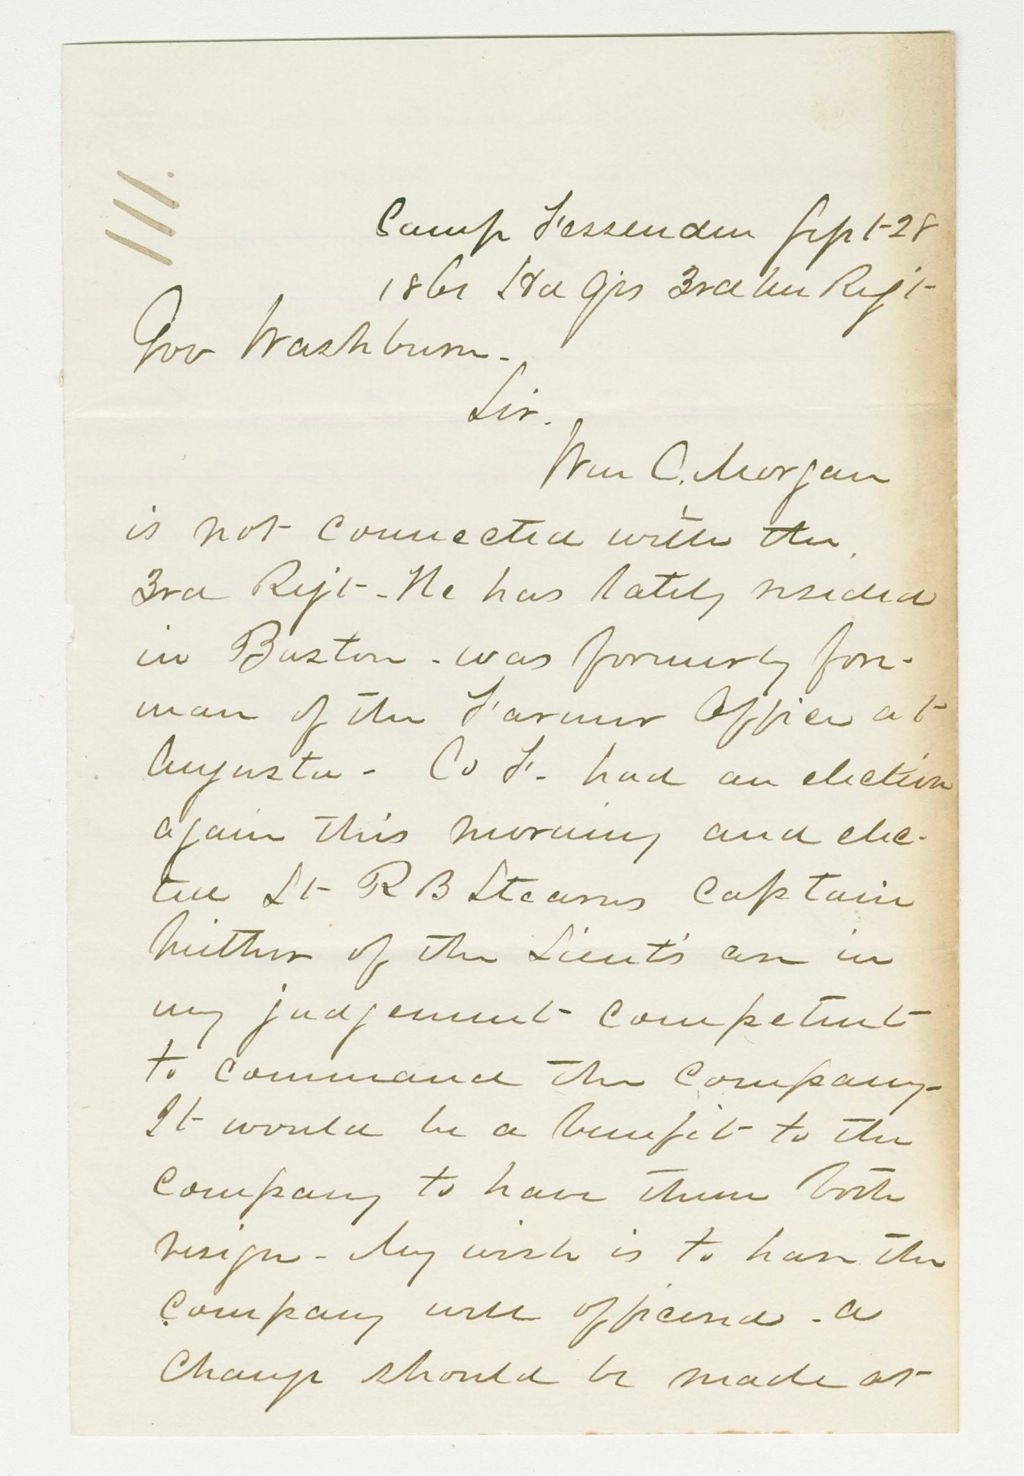 111.
Camp Fessenden Sept 28
1861 Hd Qrs 3rd Me Regt
Gov Washburn -
Sir.
Wm C. Morgan
is not connected with the
3rd Regt - He has lately resided
in Boston - was formerly fore-
man of the Farmer Office at
Augusta - Co F. had an election
again this morning and elec-
ted Lt R B Stearns Captain
Neither of the Lieut's are in
my judgement competent
to command the company -
It would be a benefit to the
company to have them both
resign - My wish is to have the
company well officered - a
change should be made at